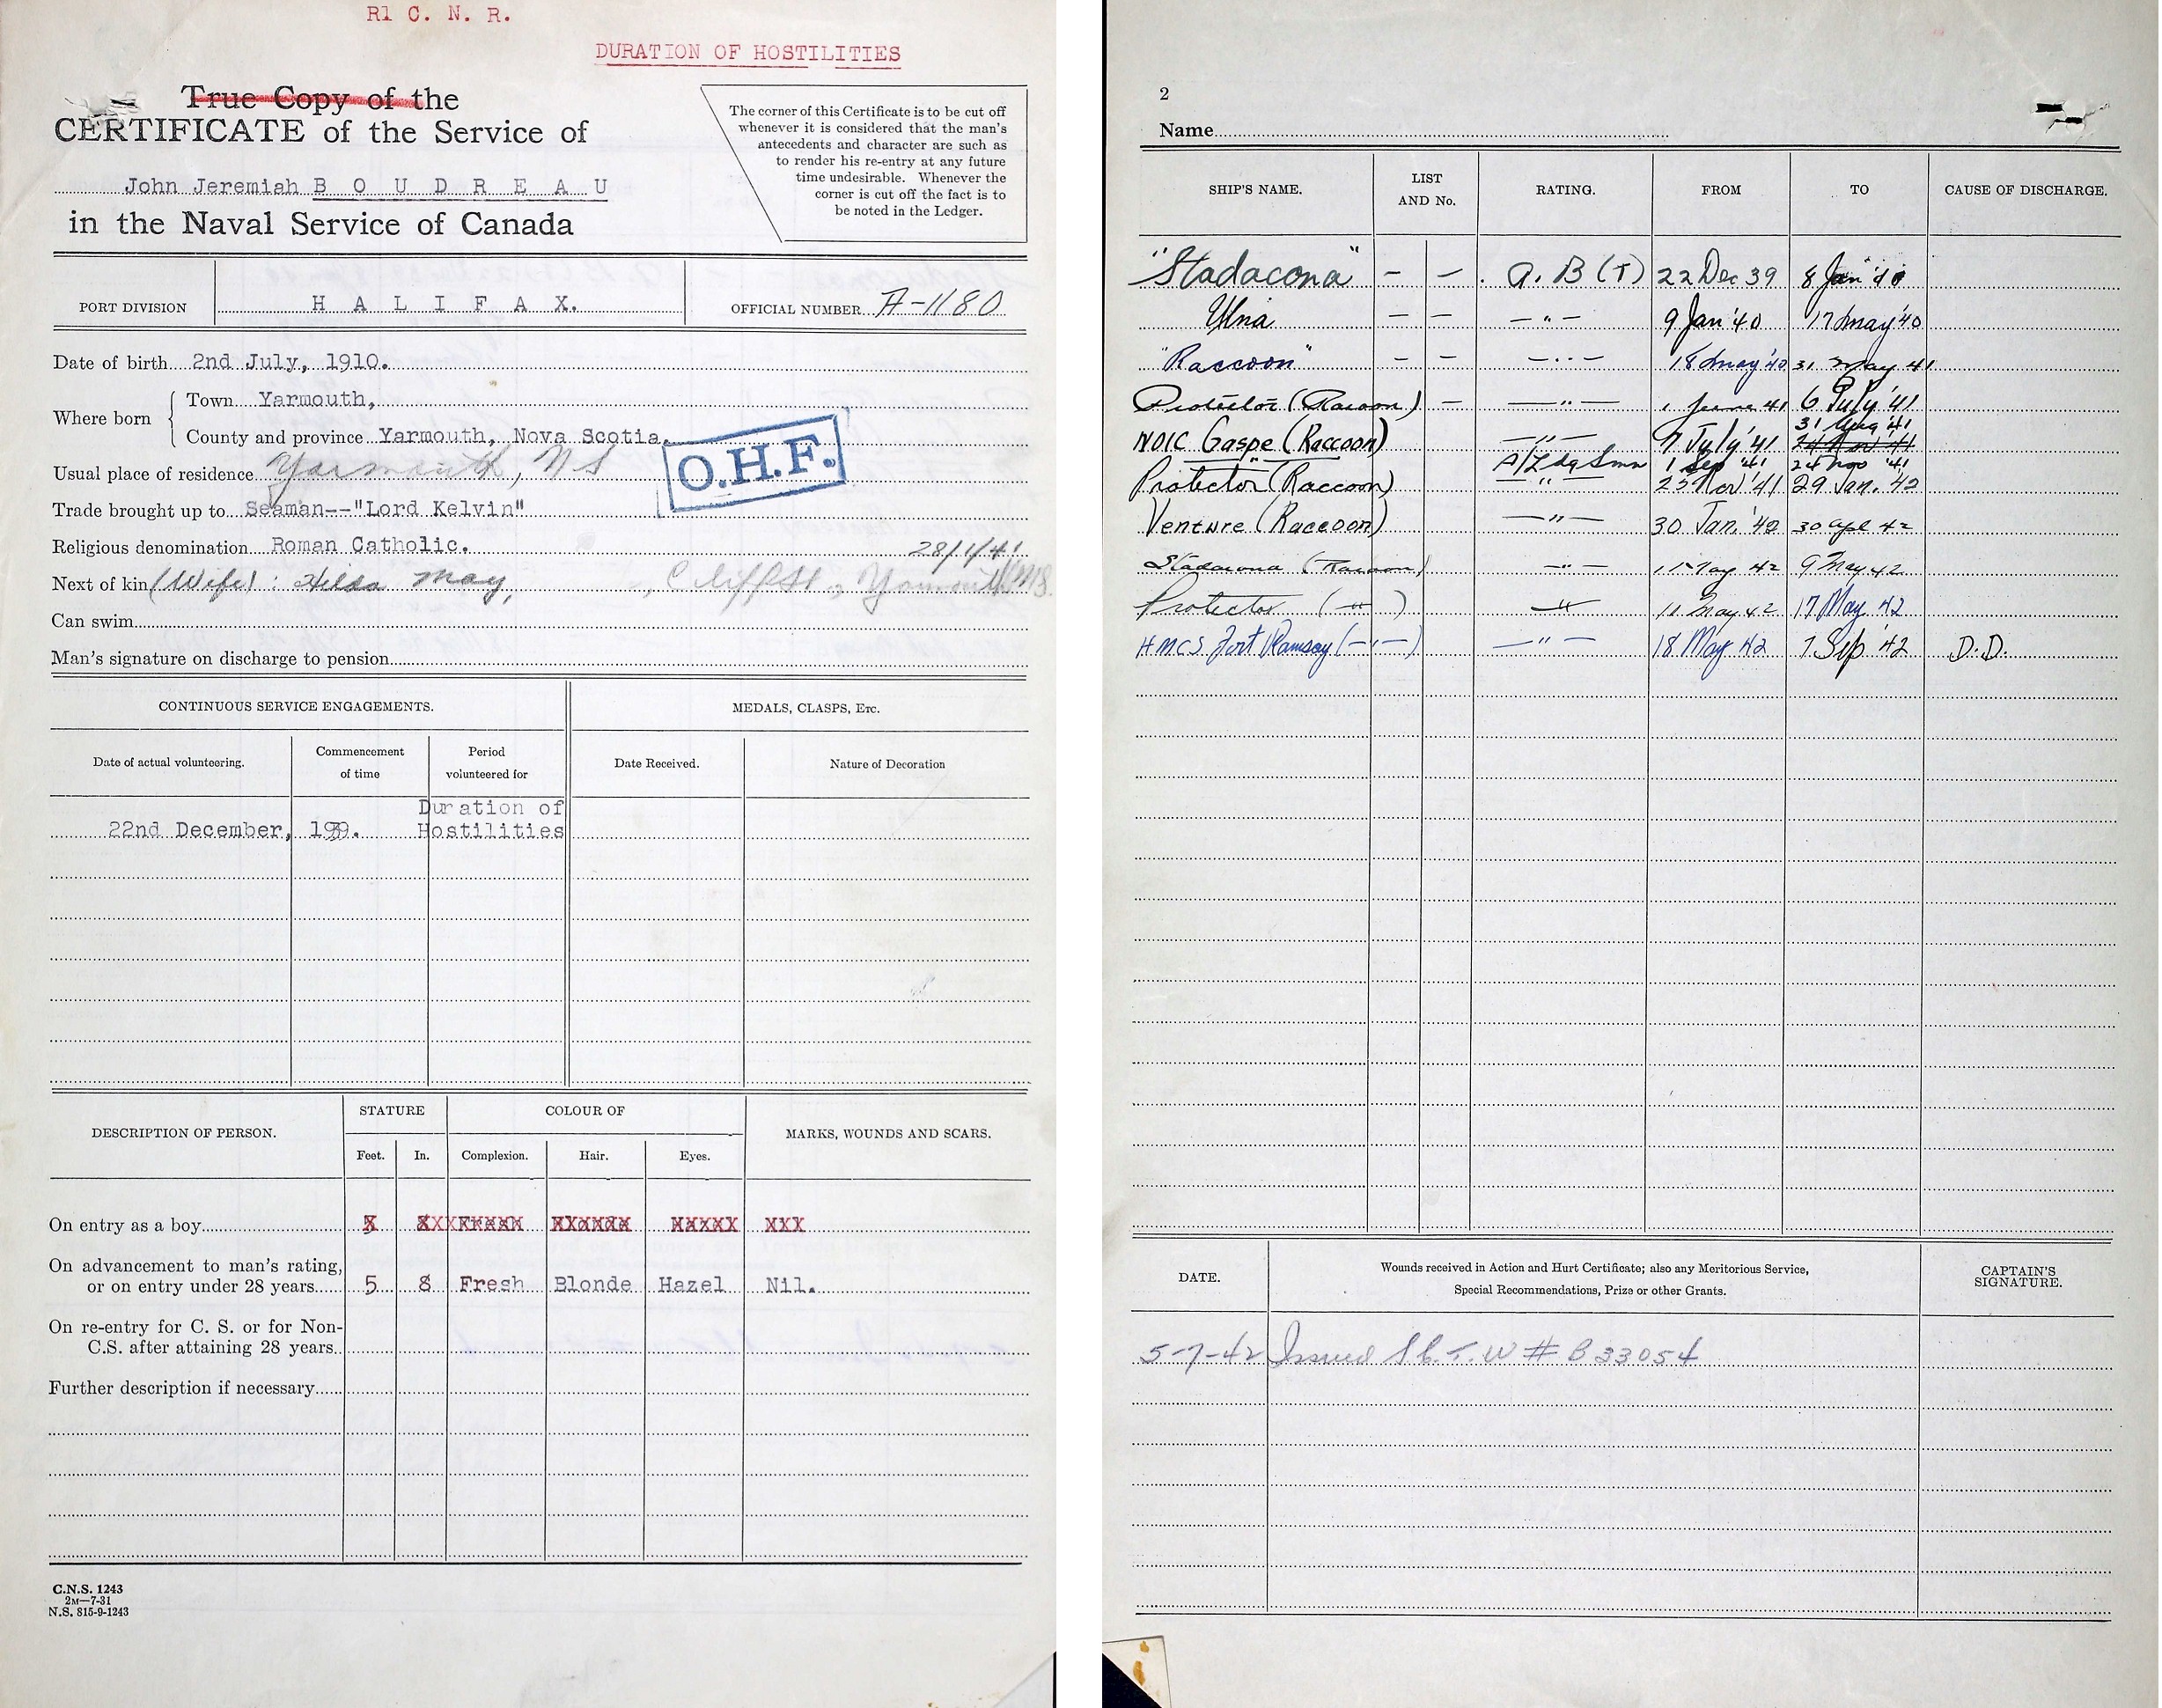 R1 C. N. R.
DURATION OF HOSTILITIES
True Copy of the
CERTIFICATE of the Service of
John Jeremiah B O U D R E A U
in the Naval Service of Canada
The corner of this Certificate is to be cut off
whenever it is considered that the man's
antecedents and character are such as
to render his re-entry at any future
time undesirable. Whenever the
corner is cut off the fact is to
be noted in the Ledger.
PORT DIVISION H A L I F A X. OFFICIAL NUMBER A-1180
Date of birth 2nd July, 1910.
Where born Town Yarmouth,
County and province Yarmouth, Nova Scotia.
O.H.F.
Usual place of residence Yarmouth, NS
Trade brought up to Seaman--"Lord Kelvin"
Religious denomination Roman Catholic. 28/1/41
Next of kin (Wife): Hilda May, , Cliff St, Yarmouth NS.
Can swim
Man's signature on discharge to pension
CONTINUOUS SERVICE ENGAGEMENTS. MEDALS, CLASPS, ETC.
Date of actual volunteering. Commencement of time Period volunteered for Date Received. Nature of Decoration
Duration of
22nd December, 1939. Hostilities
DESCRIPTION OF PERSON. STATURE COLOUR OF MARKS, WOUNDS AND SCARS.
Feet. In. Complexion. Hair. Eyes.
On entry as a boy
On advancement to man's rating,
or on entry under 28 years 5 8 Fresh Blonde Hazel Nil.
On re-entry for C. S. or for Non-
C.S. after attaining 28 years
Further description if necessary
C.N.S. 1243
2M—7-31
N.S. 815-9-1243
2
Name
SHIP'S NAME. LIST AND No. RATING. FROM TO CAUSE OF DISCHARGE.
"Stadacona" — — A. B (T) 22 Dec 39 8 Jan '40
Ulna — — — " — 9 Jan '40 17 May '40
"Raccoon" — — — " — 18 May '40 31 May 41
Protector (Racoon) — — " — 1 June 41 6 July '41
31 Aug '41
NOIC Gaspe (Raccoon) — " — 7 July '41 24 Nov 41
A/Ldg Smn 1 Sep '41 24 Nov '41
Protector (Raccoon) — " — 25 Nov '41 29 Jan. '42
Venture (Raccoon) — " — 30 Jan. '42 30 Apl 42
Stadacona (Racoon) — " — 1 May 42 9 May 42
Protector (— " —) — " — 11 May 42 17 May 42
HMCS Fort Ramsay (— " —) — " — 18 May 42 7 Sep '42 D.D.
DATE. Wounds received in Action and Hurt Certificate; also any Meritorious Service,
Special Recommendations, Prize or other Grants. CAPTAIN'S
SIGNATURE.
5-7-42 Issued # B 33054